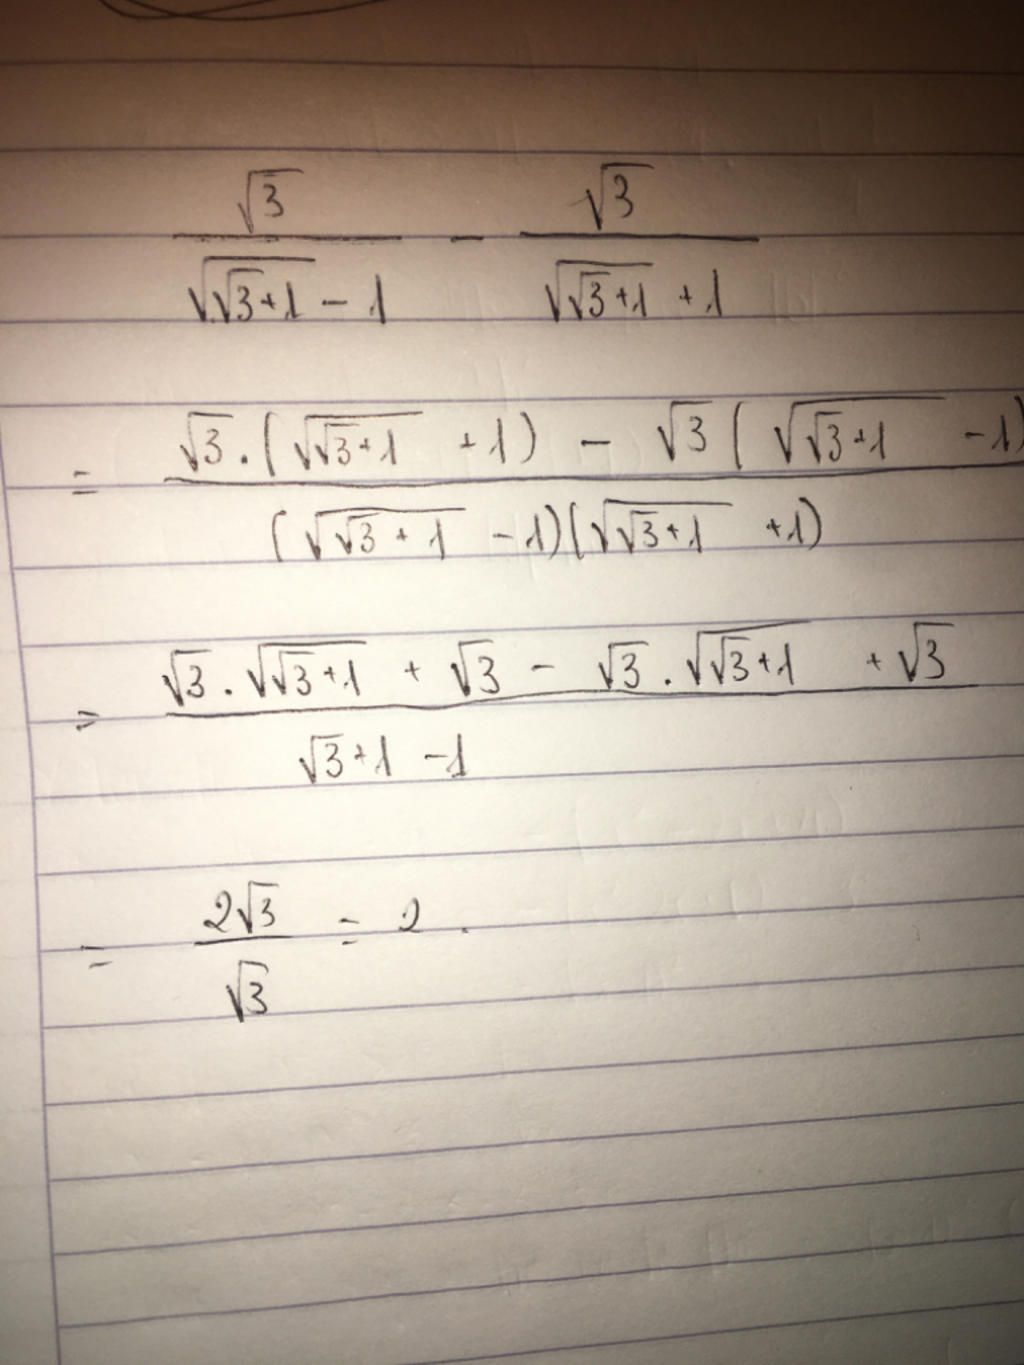 √3/(√(√3+1) - 1) - √3/(√(√3+1) + 1)
= (√3.(√(√3+1) + 1) - √3(√(√3+1) - 1))/((√(√3+1) - 1)(√(√3+1) + 1))
= (√3.√(√3+1) + √3 - √3.√(√3+1) + √3)/(√3+1 - 1)
= 2√3/√3 = 2.